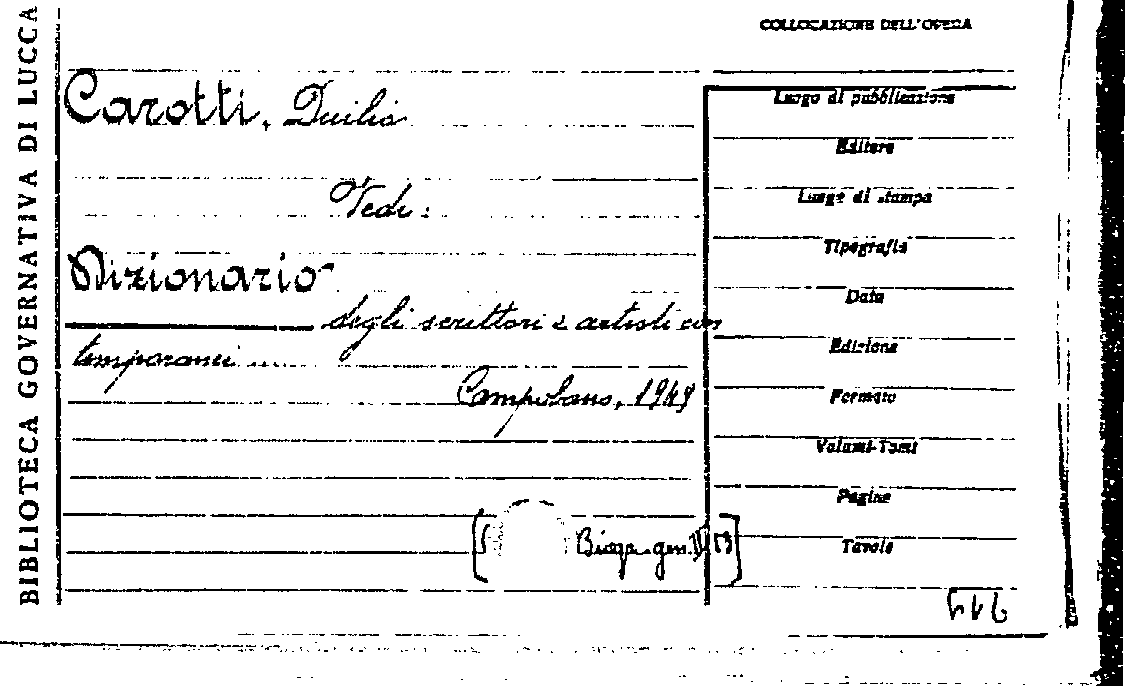 BIBLIOTECA GOVERNATIVA DI LUCCA
COLLOCAZIONE DELL'OPERA
Carotti, Duilio
Vedi:
Dizionario
degli scrittori e artisti con
temporanei ....
Campobasso, 1948
Biogr. gen. II 13
Luogo di pubblicazione
Editore
Luogo di stampa
Tipografia
Data
Edizione
Formato
Volumi-Tomi
Pagine
Tavole